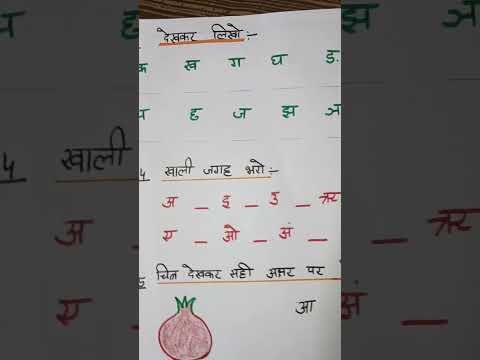 देखकर लिखो :-
क ख ग घ ङ
च छ ज झ ञ
4 खाली जगह भरो :-
अ _ इ _ उ _ ऋ
ए _ ओ _ अं _
5 चित्र देखकर सही अक्षर पर
आ